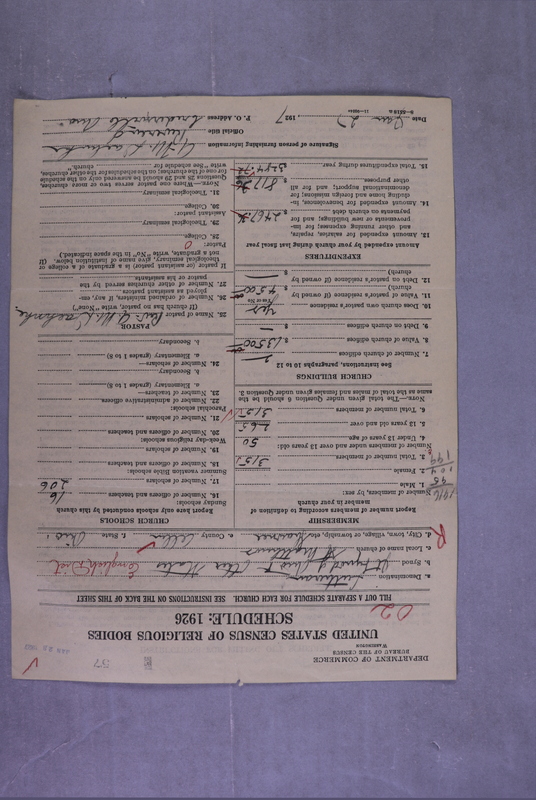 DEPARTMENT OF COMMERCE
BUREAU OF THE CENSUS
WASHINGTON
57
UNITED STATES CENSUS OF RELIGIOUS BODIES
SCHEDULE: 1926
02
FILL OUT A SEPARATE SCHEDULE FOR EACH CHURCH. SEE INSTRUCTIONS ON THE BACK OF THIS SHEET
a. Denomination Lutheran
b. Synod Jt Synod of Ohio & Other States English Dist
c. Local name of church St Matthews
d. City, town, village, or township, etc. e. County Allen f. State Ohio
R
MEMBERSHIP
Report here number of members according to definition of member in your church
Number of members, by sex:
1. Male
2. Female
3. Total number of members 315
1916
95
104
199
Number of members under and over 13 years old:
4. Under 13 years of age 50
5. 13 years old and over 265
6. Total number of members 315
NOTE.—The total given under Question 6 should be the same as the total of males and females given under Question 3.
CHURCH BUILDINGS
See Instructions, paragraphs 10 to 12
7. Number of church edifices
8. Value of church edifices $ 13500
9. Debt on church edifices $ —
10. Does church own pastor's residence yes
(Yes or No)
11. Value of pastor's residence (if owned by church) $ 4500
12. Debt on pastor's residence (if owned by church) $
EXPENDITURES
Amount expended by your church during last fiscal year
13. Amount expended for salaries, repairs, and other running expenses; for improvements or new buildings; and for payments on church debt $
14. Amount expended for benevolences, including home and foreign missions; for denominational support; and for all other purposes $
15. Total expenditures during year
CHURCH SCHOOLS
Report here only schools conducted by this church
Sunday schools:
16. Number of officers and teachers 16
17. Number of scholars 206
Summer vacation Bible schools:
18. Number of officers and teachers
19. Number of scholars
Weekday religious schools:
20. Number of officers and teachers
21. Number of scholars
Parochial schools:
22. Number of administrative officers
23. Number of teachers
a. Elementary (grades 1 to 8)
b. Secondary
24. Number of scholars—
a. Elementary (grades 1 to 8)
b. Secondary
PASTOR
25. Name of pastor Rev.
(If church has no pastor, write "None")
26. Number of ordained ministers, if any, employed as assistant pastors
27. Number of other churches served by the pastor or his assistants
If pastor (or assistant pastor) is a graduate of a college or theological seminary, give name of institution below. (If not a graduate, write "No" in the space indicated.)
Pastor:
28. College
29. Theological seminary
Assistant pastor:
30. College
31. Theological seminary
NOTE.—Where one pastor serves two or more churches, Questions 28 and 29 should be answered only on the schedule for one of the churches; on the schedule for the other churches, write "See schedule for church."
Signature of person furnishing information
Official title
Date 1927 P. O. Address Ohio
8—5518 a 11—9084